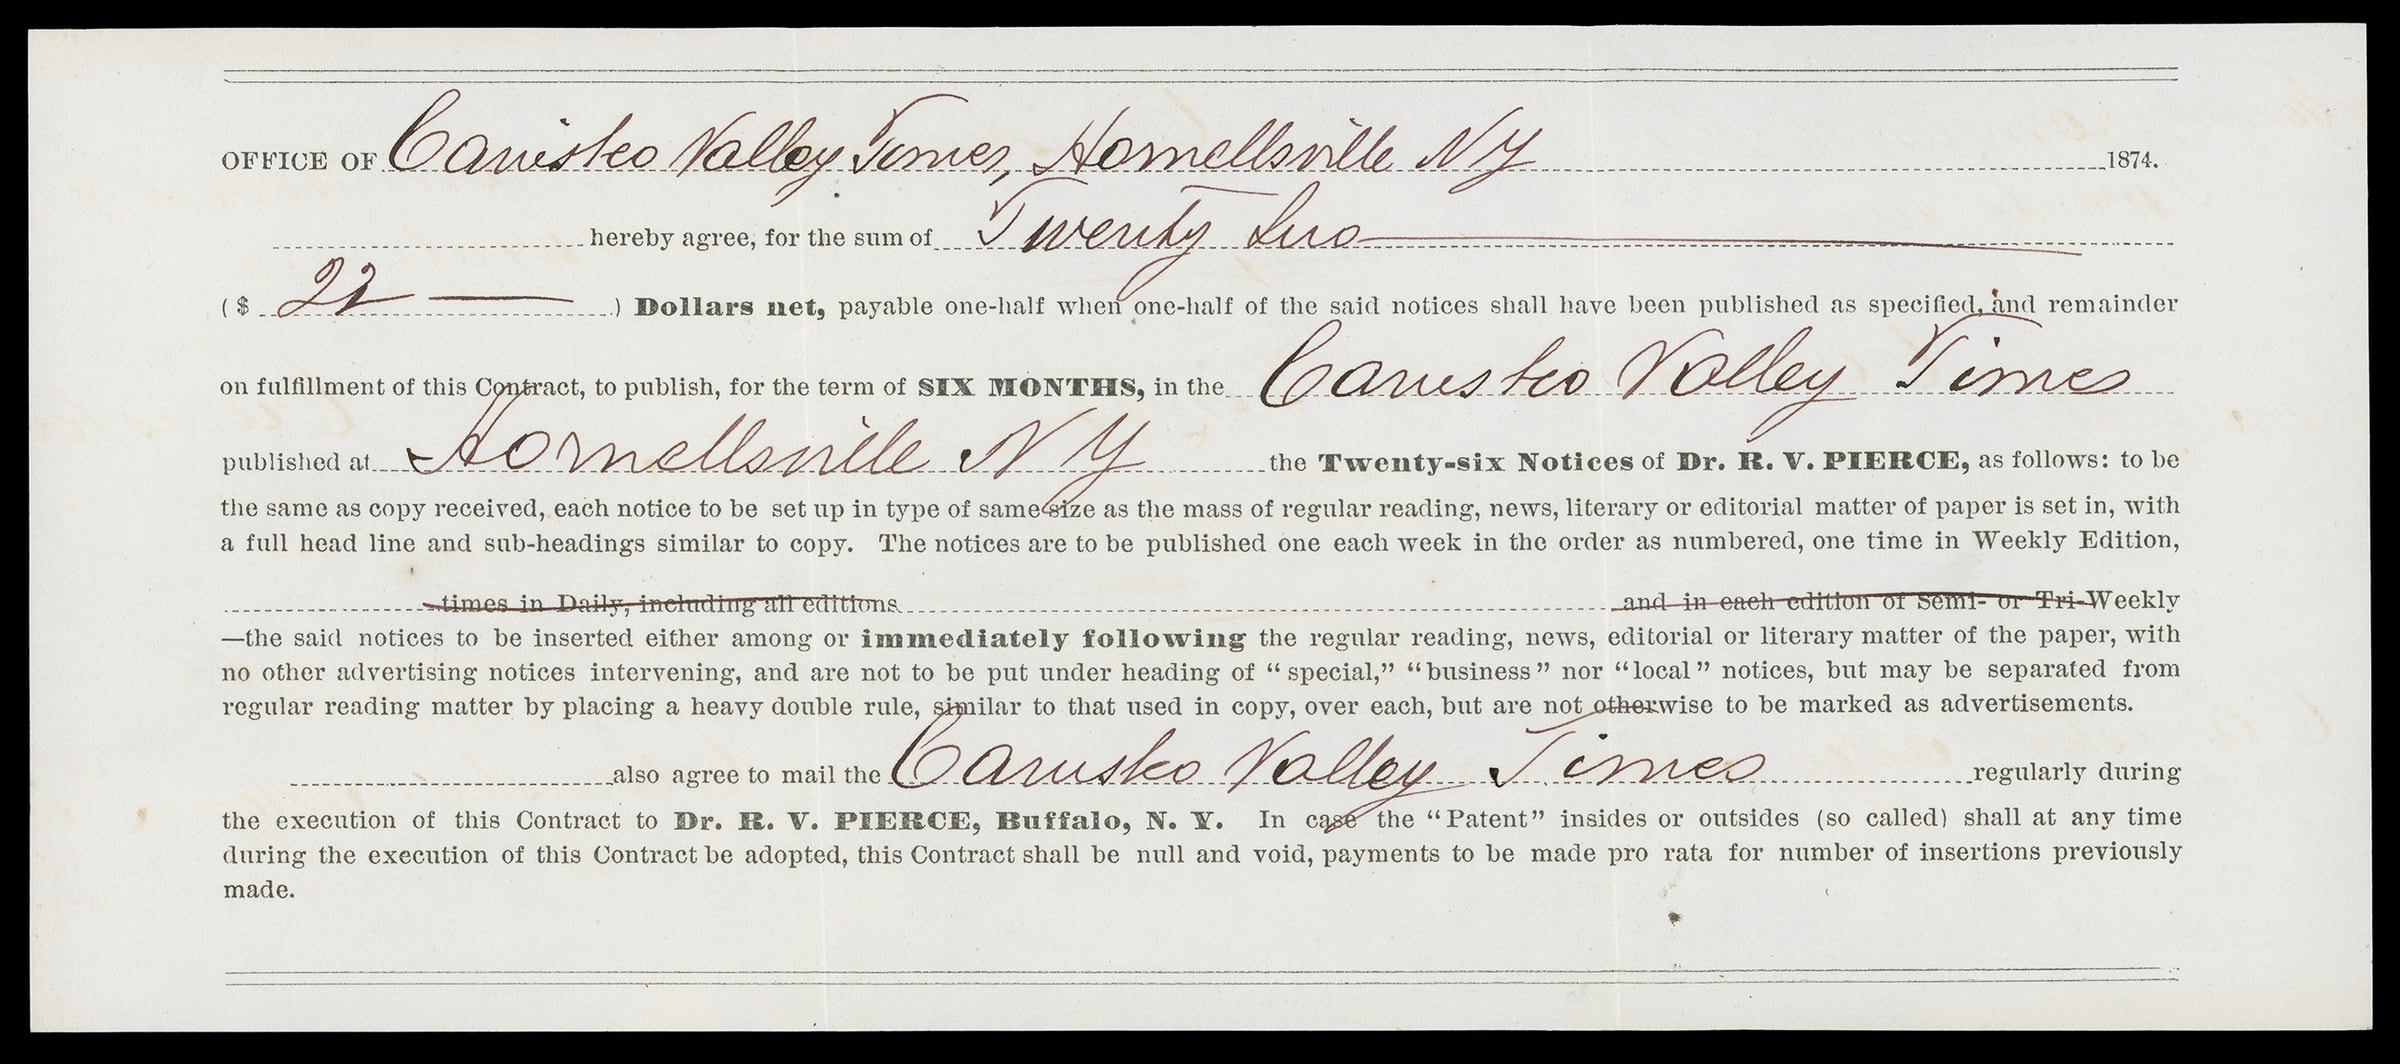 OFFICE OF Canisteo Valley Times, Hornellsville NY 1874.
hereby agree, for the sum of Twenty Two
($ 22 ) Dollars net, payable one-half when one-half of the said notices shall have been published as specified, and remainder
on fulfillment of this Contract, to publish, for the term of SIX MONTHS, in the Canisteo Valley Times
published at Hornellsville NY the Twenty-six Notices of Dr. R. V. PIERCE, as follows: to be
the same as copy received, each notice to be set up in type of same size as the mass of regular reading, news, literary or editorial matter of paper is set in, with
a full head line and sub-headings similar to copy. The notices are to be published one each week in the order as numbered, one time in Weekly Edition,
times in Daily, including all editions and in each edition of Semi- or Tri-Weekly
—the said notices to be inserted either among or immediately following the regular reading, news, editorial or literary matter of the paper, with
no other advertising notices intervening, and are not to be put under heading of "special," "business" nor "local" notices, but may be separated from
regular reading matter by placing a heavy double rule, similar to that used in copy, over each, but are not otherwise to be marked as advertisements.
also agree to mail the Canisteo Valley Times regularly during
the execution of this Contract to Dr. R. V. PIERCE, Buffalo, N. Y. In case the "Patent" insides or outsides (so called) shall at any time
during the execution of this Contract be adopted, this Contract shall be null and void, payments to be made pro rata for number of insertions previously
made.